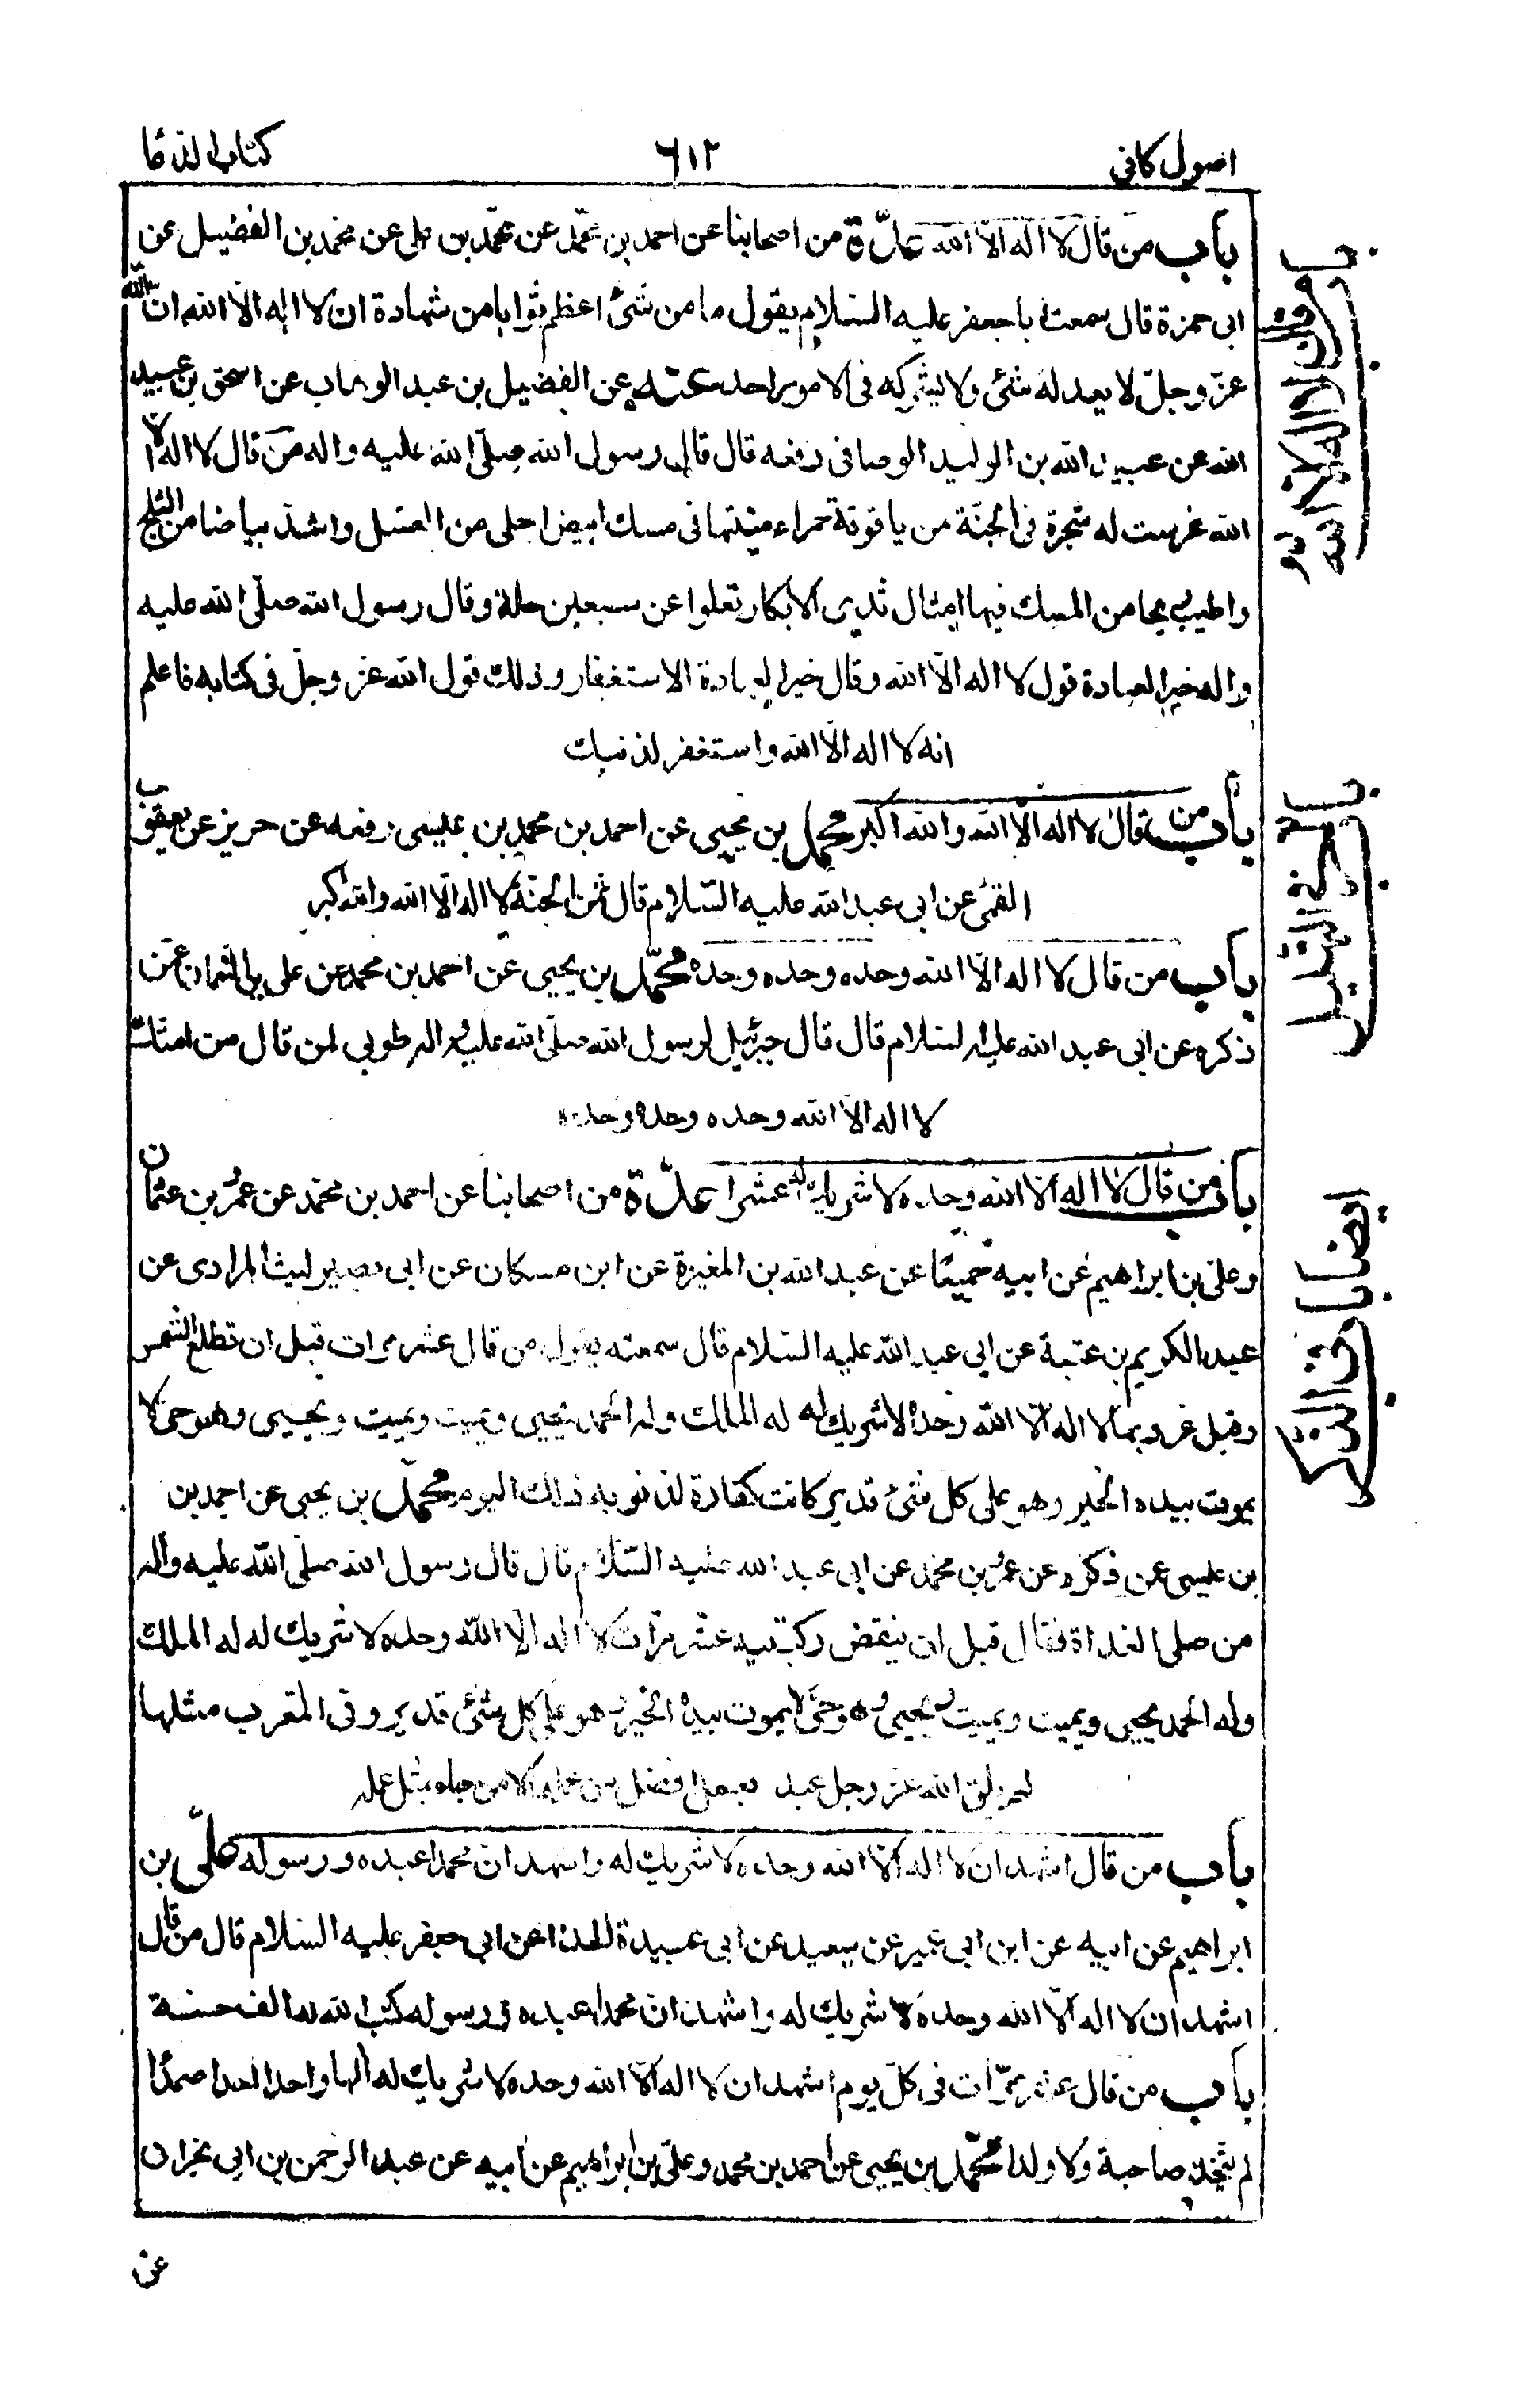 اصول كافى
٦١٢
كتاب الدعا
باب من قال لا اله الّا الله عدّة من اصحابنا عن احمد بن محمّد عن محمّد بن على عن محمد بن الفضيل عن
ابى حمزة قال سمعت اباجعفر عليه السلام يقول ما من شئ اعظم ثوابا من شهادة ان لا اله الّا الله ان الله
عزّ وجلّ لا يعدله شئ ولا يشركه فى الامور احد عنه عن الفضيل بن عبد الوهاب عن اسحق بن عبيد
الله عن عبيد الله بن الوليد الوصافى رفعه قال قال رسول الله صلّى الله عليه واله من قال لا اله الّا
الله غرست له شجرة فى الجنّة من ياقوتة حمراء منبتها فى مسك ابيض احلى من العسل واشدّ بياضا من الثلج
واطيب ريحا من المسك فيها امثال ثدى الابكار تعلوا عن سبعين حلة وقال رسول الله صلّى الله عليه
واله خير العبادة قول لا اله الّا الله وقال خير العبادة الاستغفار وذلك قول الله عز وجلّ فى كتابه فاعلم
انه لا اله الّا الله واستغفر لذنبك
باب من قال لا اله الّا الله والله اكبر محمّد بن يحيى عن احمد بن محمد بن عيسى رفعه عن حريز عن يعقوب
القمّى عن ابى عبد الله عليه السّلام قال ثمن الجنّة لا اله الّا الله والله اكبر
باب من قال لا اله الّا الله وحده وحده وحده محمّد بن يحيى عن احمد بن محمد عن على بن النعمان عمّن
ذكره عن ابى عبد الله عليه السلام قال قال جبرئيل لرسول الله صلّى الله عليه واله طوبى لمن قال من امتك
لا اله الّا الله وحده وحده وحده
باب من قال لا اله الّا الله وحده لا شريك له عشرا عدّة من اصحابنا عن احمد بن محمد عن عمر بن عثمان
وعلى بن ابراهيم عن ابيه جميعًا عن عبد الله بن المغيرة عن ابن مسكان عن ابى بصير ليث المرادى عن
عبد الكريم بن عتبة عن ابى عبد الله عليه السّلام قال سمعته يقول من قال عشر مرات قبل ان تطلع الشمس
وقبل غروبها لا اله الّا الله وحده لا شريك له له الملك وله الحمد يحيى ويميت ويميت ويحيى وهو حى لا
يموت بيده الخير وهو على كل شئ قدير كانت كفارة لذنوبه ذلك اليوم محمّد بن يحيى عن احمد بن
بن عيسى عمن ذكره عن عمر بن محمد عن ابى عبد الله عليه السّلام قال قال رسول الله صلّى الله عليه واله
من صلى الغداة فقال قبل ان ينقض ركبتيه عشر مرات لا اله الّا الله وحده لا شريك له له الملك
وله الحمد يحيى ويميت ويميت ويحيى وهو حىّ لا يموت بيده الخير وهو على كل شئ قدير وفى المغرب مثلها
لم يلق الله عز وجل عبد بعمل افضل من عمله الا من جاء بمثل عمله
باب من قال اشهد ان لا اله الّا الله وحده لا شريك له واشهد ان محمدا عبده ورسوله علىّ بن
ابراهيم عن ابيه عن ابن ابى عمير عن سعيد عن ابى عبيدة الحذا عن ابى جعفر عليه السلام قال من قال
اشهد ان لا اله الّا الله وحده لا شريك له واشهد ان محمدا عبده ورسوله كتب الله له الف حسنة
باب من قال عشر مرّات فى كلّ يوم اشهد ان لا اله الّا الله وحده لا شريك له الها واحدا احدا صمدًا
لم يتّخذ صاحبة ولا ولدا محمّد بن يحيى عن احمد بن محمد وعلىّ بن ابراهيم عن ابيه عن عبد الرحمن بن ابى نجران
عن
ايضا باب فى الذكر